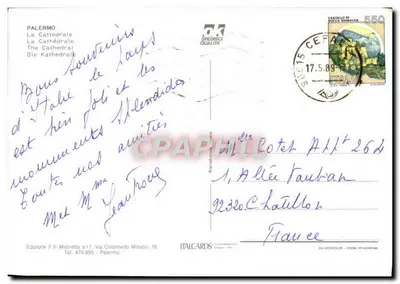 PALERMO
La Cattedrale
La Cathédrale
The Cathedral
Die Kathedrale
SPEDISCI
QUALITÀ
CASTELLO DI
ROCCA SINIBALDA
550
90015 CEFALU
17.5.89
Bons souvenirs
d'Italie le pays
est bien joli et les
monuments splendides
Toutes nos amitiés
Mr et Mme
CPARAMA
Mlle Cotet Appt 262
1, Allée Vauban
92320 Chatillon
France
Edizione F.lli Mistretta s.r.l. Via Colonnello Milazzo, 16
Tel. 474.895 - Palermo
ITALCARDS